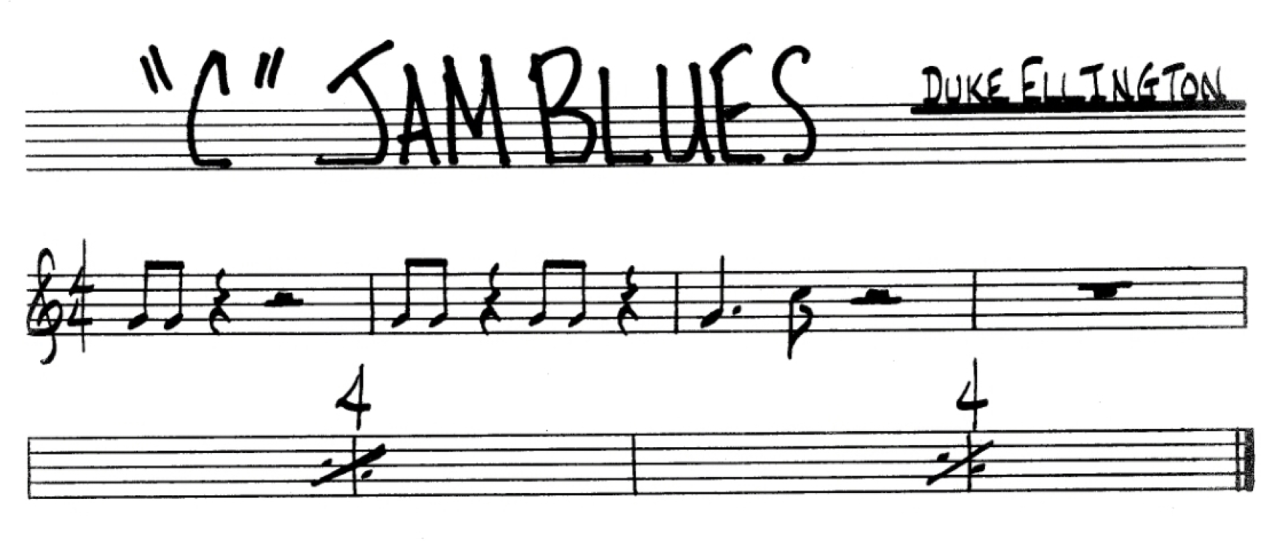 "C" JAM BLUES
DUKE ELLINGTON
4
4
4 4